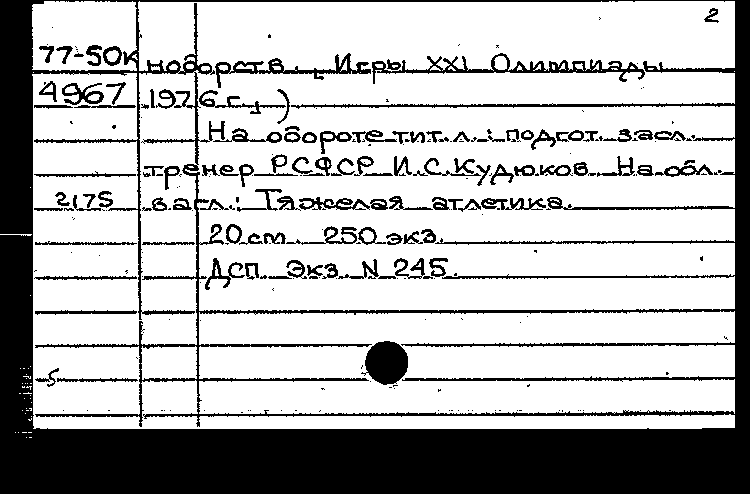 2
77-50к ноборств. [Игры XXI Олимпиады
4967 1976 г.])
На обороте тит. л.: подгот. засл.
тренер РСФСР И.С.Кудюков. На обл.
2175 загл.: Тяжелая атлетика.
20 см. 250 экз.
ДСП. Экз. N 245.
5